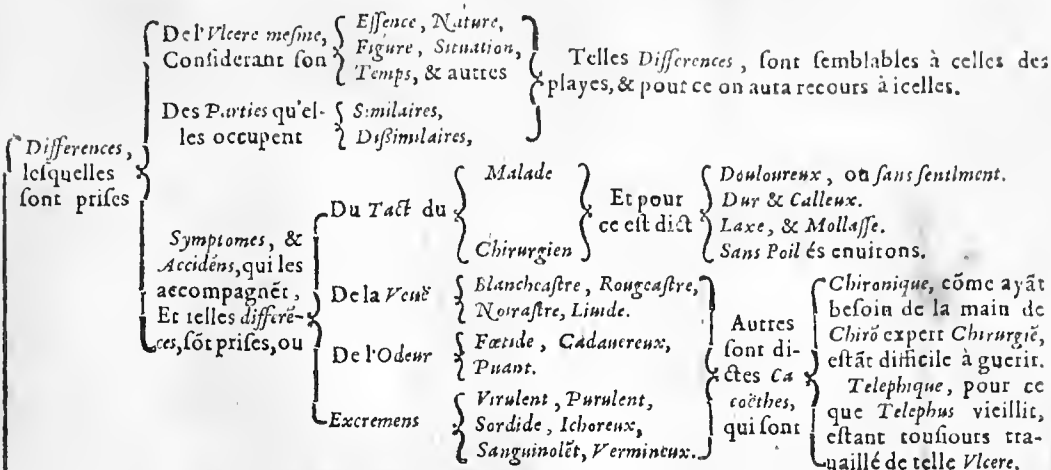 Differences,
lesquelles
sont prises
De l'Vlcere mesme,
Considerant son
Essence, Nature,
Figure, Situation,
Temps, & autres
Des Parties qu'el-
les occupent
Similaires,
Dißimilaires,
Telles Differences, sont semblables à celles des
playes, & pour ce on aura recours à icelles.
Symptomes, &
Accidēs, qui les
accompagnēt,
Et telles differē-
ces, sōt prises, ou
Du Tact du
Malade
Chirurgien
Et pour
ce est dict
Douloureux, ou sans sentiment.
Dur & Calleux.
Laxe, & Mollasse.
Sans Poil és enuirons.
De la Veuë
Blancheastre, Rougeastre,
Noirastre, Liuide.
De l'Odeur
Fœtide, Cadauereux,
Puant.
Excremens
Virulent, Purulent,
Sordide, Ichoreux,
Sanguinolēt, Vermineux.
Autres
sont di-
ctes Ca
coëthes,
qui sont
Chironique, cōme ayāt
besoin de la main de
Chirō expert Chirurgiē,
estāt difficile à guerir.
Telephique, pour ce
que Telephus vieillit,
estant tousiours tra-
uaillé de telle Vlcere.